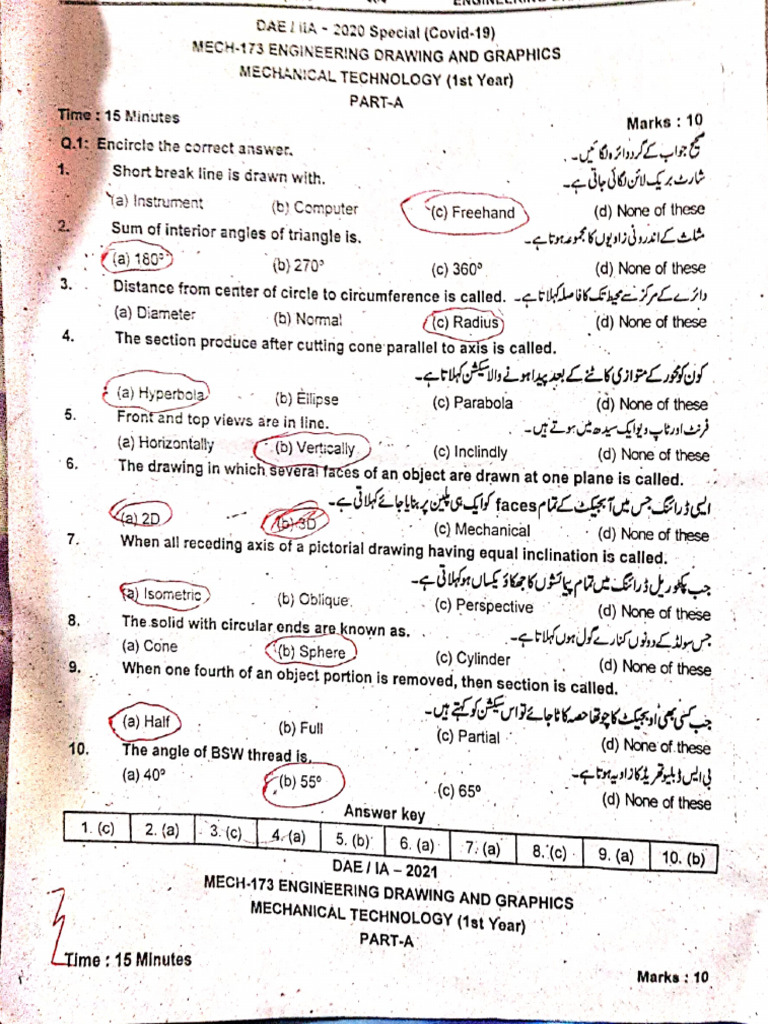 ENGINEERING
DAE / IIA - 2020 Special (Covid-19)
MECH-173 ENGINEERING DRAWING AND GRAPHICS
MECHANICAL TECHNOLOGY (1st Year)
PART-A
Time : 15 Minutes Marks : 10
Q.1: Encircle the correct answer. صحیح جواب کے گرد دائرہ لگائیں۔
1. Short break line is drawn with. شارٹ بریک لائن لگائی جاتی ہے۔
(a) Instrument (b) Computer (c) Freehand (d) None of these
2. Sum of interior angles of triangle is. مثلث کے اندرونی زاویوں کا مجموعہ ہوتا ہے۔
(a) 180° (b) 270° (c) 360° (d) None of these
3. Distance from center of circle to circumference is called. دائرے کے مرکز سے محیط تک کا فاصلہ کہلاتا ہے۔
(a) Diameter (b) Normal (c) Radius (d) None of these
4. The section produce after cutting cone parallel to axis is called.
کون کو محور کے متوازی کاٹنے کے بعد پیدا ہونے والا سیکشن کہلاتا ہے۔
(a) Hyperbola (b) Ellipse (c) Parabola (d) None of these
5. Front and top views are in line. فرنٹ اور ٹاپ ویو ایک سیدھ میں ہوتے ہیں۔
(a) Horizontally (b) Vertically (c) Inclindly (d) None of these
6. The drawing in which several faces of an object are drawn at one plane is called.
ایسی ڈرائنگ جس میں آبجیکٹ کے تمام faces کو ایک ہی پلین پر بنایا جائے کہلاتی ہے۔
(a) 2D (b) 3D (c) Mechanical (d) None of these
7. When all receding axis of a pictorial drawing having equal inclination is called.
جب پکٹوریل ڈرائنگ میں تمام پیمائشوں کا جھکاؤ یکساں ہو کہلاتی ہے۔
(a) Isometric (b) Oblique (c) Perspective (d) None of these
8. The solid with circular ends are known as. جس سولڈ کے دونوں کنارے گول ہوں کہلاتا ہے۔
(a) Cone (b) Sphere (c) Cylinder (d) None of these
9. When one fourth of an object portion is removed, then section is called.
جب کسی بھی اوبجیکٹ کا چوتھا حصہ کاٹا جائے تو اس سیکشن کو کہتے ہیں۔
(a) Half (b) Full (c) Partial (d) None of these
10. The angle of BSW thread is. بی ایس ڈبلیو تھریڈ کا زاویہ ہوتا ہے۔
(a) 40° (b) 55° (c) 65° (d) None of these
Answer key
1. (c) 2. (a) 3. (c) 4. (a) 5. (b) 6. (a) 7. (a) 8. (c) 9. (a) 10. (b)
DAE / IA - 2021
MECH-173 ENGINEERING DRAWING AND GRAPHICS
MECHANICAL TECHNOLOGY (1st Year)
PART-A
Time : 15 Minutes Marks : 10